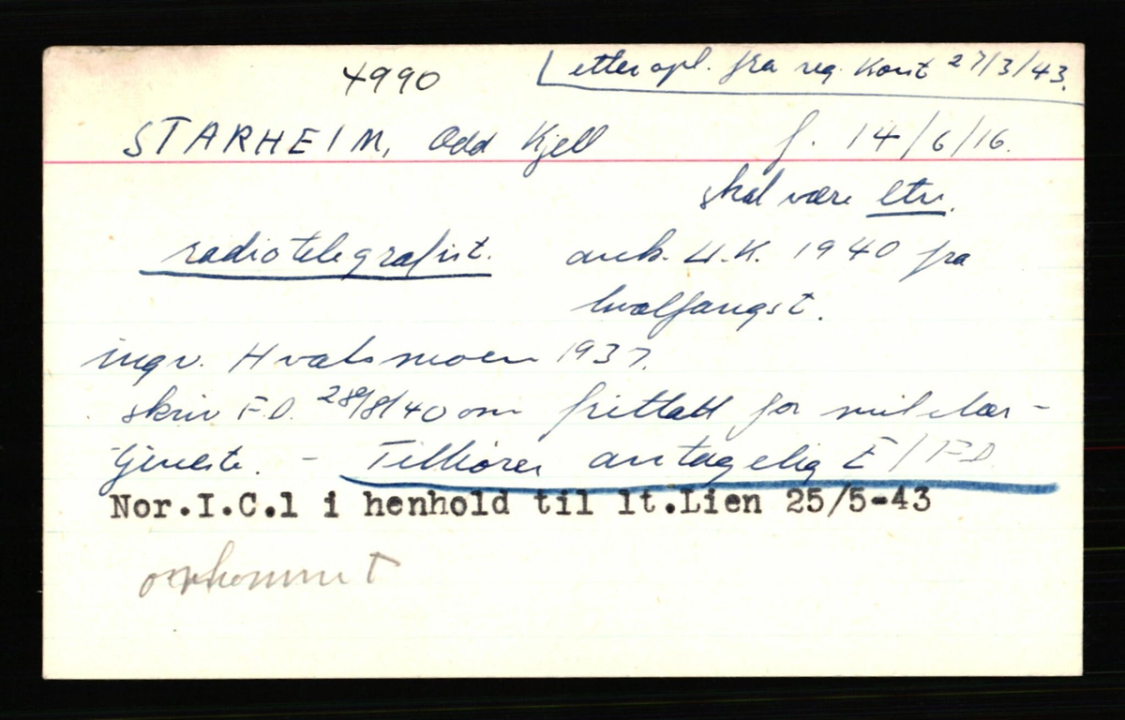 4990
etter opl. fra reg. Kont 27/3/43.
STARHEIM, Odd Kjell f. 14/6/16.
skal være ltn.
radiotelegrafist. ank. U.K. 1940 fra
hvalfangst.
ingv. Hvalsmoen 1937.
skriv F.D. 28/8/40 om fritatt for militær-
tjeneste. - Tilhører antagelig E/FD
Nor.I.C.1 i henhold til lt.Lien 25/5-43
omkommet